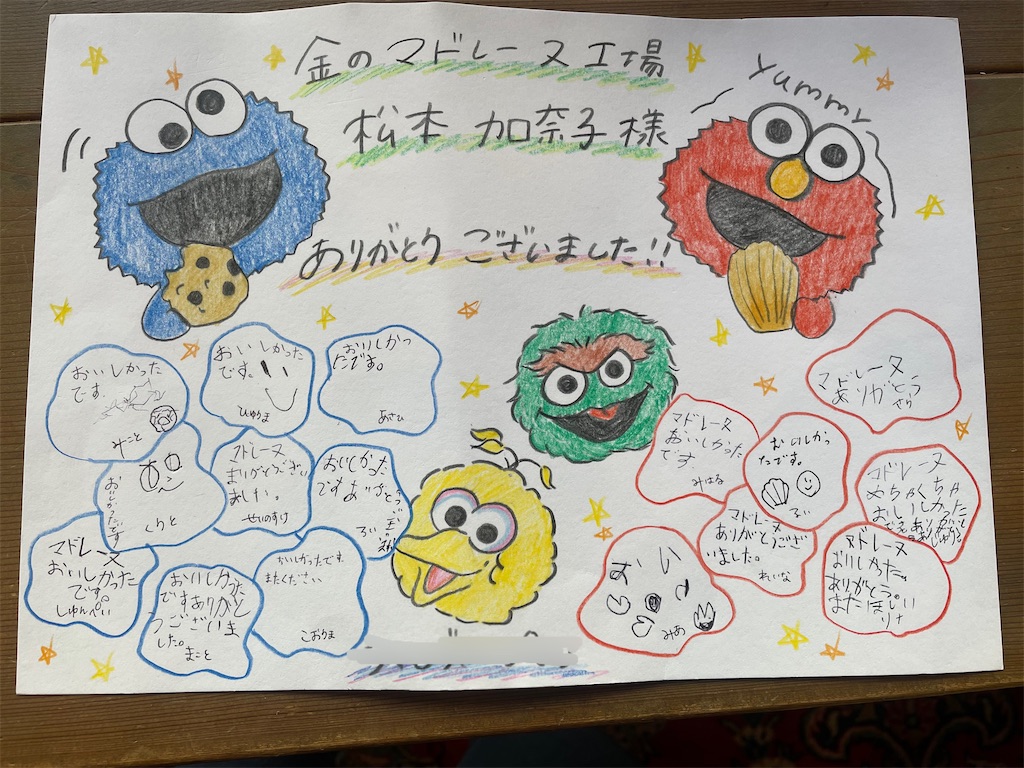 金のマドレーヌ工場
松本 加奈子様
ありがとうございました!!
yummy
おいしかった
です。
みこと
おいしかった
です。
ひゅうま
おいしかっ
たです。
あさひ
おいしかったです
くりと
マドレーヌ
ありがとうござい
ました。
せいのすけ
おいしかった
です
マドレーヌ
おいしかった
です。
しゅんぺい
おいしかった
ですありがと
うございま
した。
まこと
おいしかったです。
またください
こおりま
マドレーヌ
ありがとう
さり
マドレーヌ
おいしかった
です。
みはる
おいしかっ
たです。
るい
マドレーヌ
めちゃくちゃ
おいしかった
マドレーヌ
ありがとうござ
いました。
れいな
おいし
みあ
マドレーヌ
おいしかった。
ありがとう。
またほしい
りな